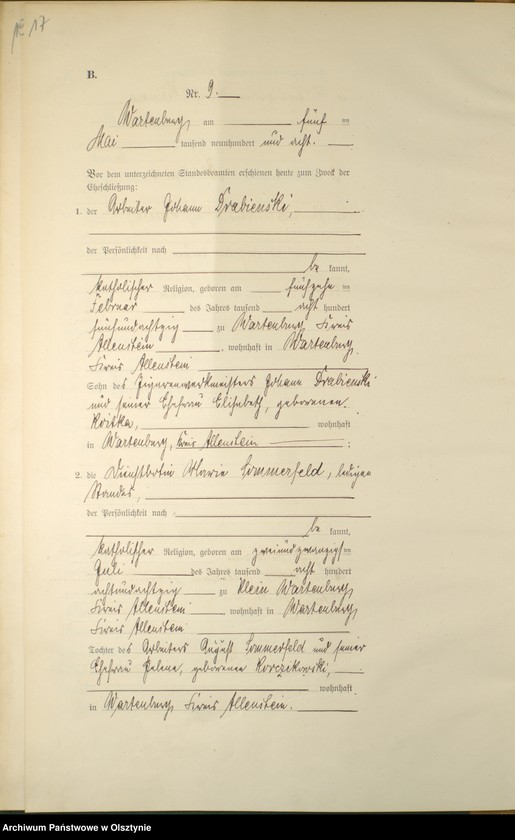 17
B.
Nr. 9.
Wartenburg, am fünf ten
Mai tausend neunhundert und acht.
Vor dem unterzeichneten Standesbeamten erschienen heute zum Zweck der
Eheschließung:
1. der Arbeiter Johann Drabienski,
der Persönlichkeit nach
be kannt,
katholischer Religion, geboren am fünfzehn ten
Februar des Jahres tausend acht hundert
fünfundachtzig zu Wartenburg Kreis
Allenstein, wohnhaft in Wartenburg,
Kreis Allenstein
Sohn des Johann Drabienski
und seiner Ehefrau Elisabeth, geborenen
wohnhaft
in Wartenburg, Kreis Allenstein;
2. die Dienstbotin Maria Sommerfeld, ledigen
Standes,
der Persönlichkeit nach
be kannt,
katholischer Religion, geboren am zweiundzwanzigs ten
Juli des Jahres tausend acht hundert
achtundachtzig zu Klein Wartenburg,
Kreis Allenstein, wohnhaft in Wartenburg,
Kreis Allenstein
Tochter des Arbeiters August Sommerfeld und seiner
Ehefrau Helene, geborenen Korczikowski,
wohnhaft
in Wartenburg Kreis Allenstein.
Archiwum Państwowe w Olsztynie